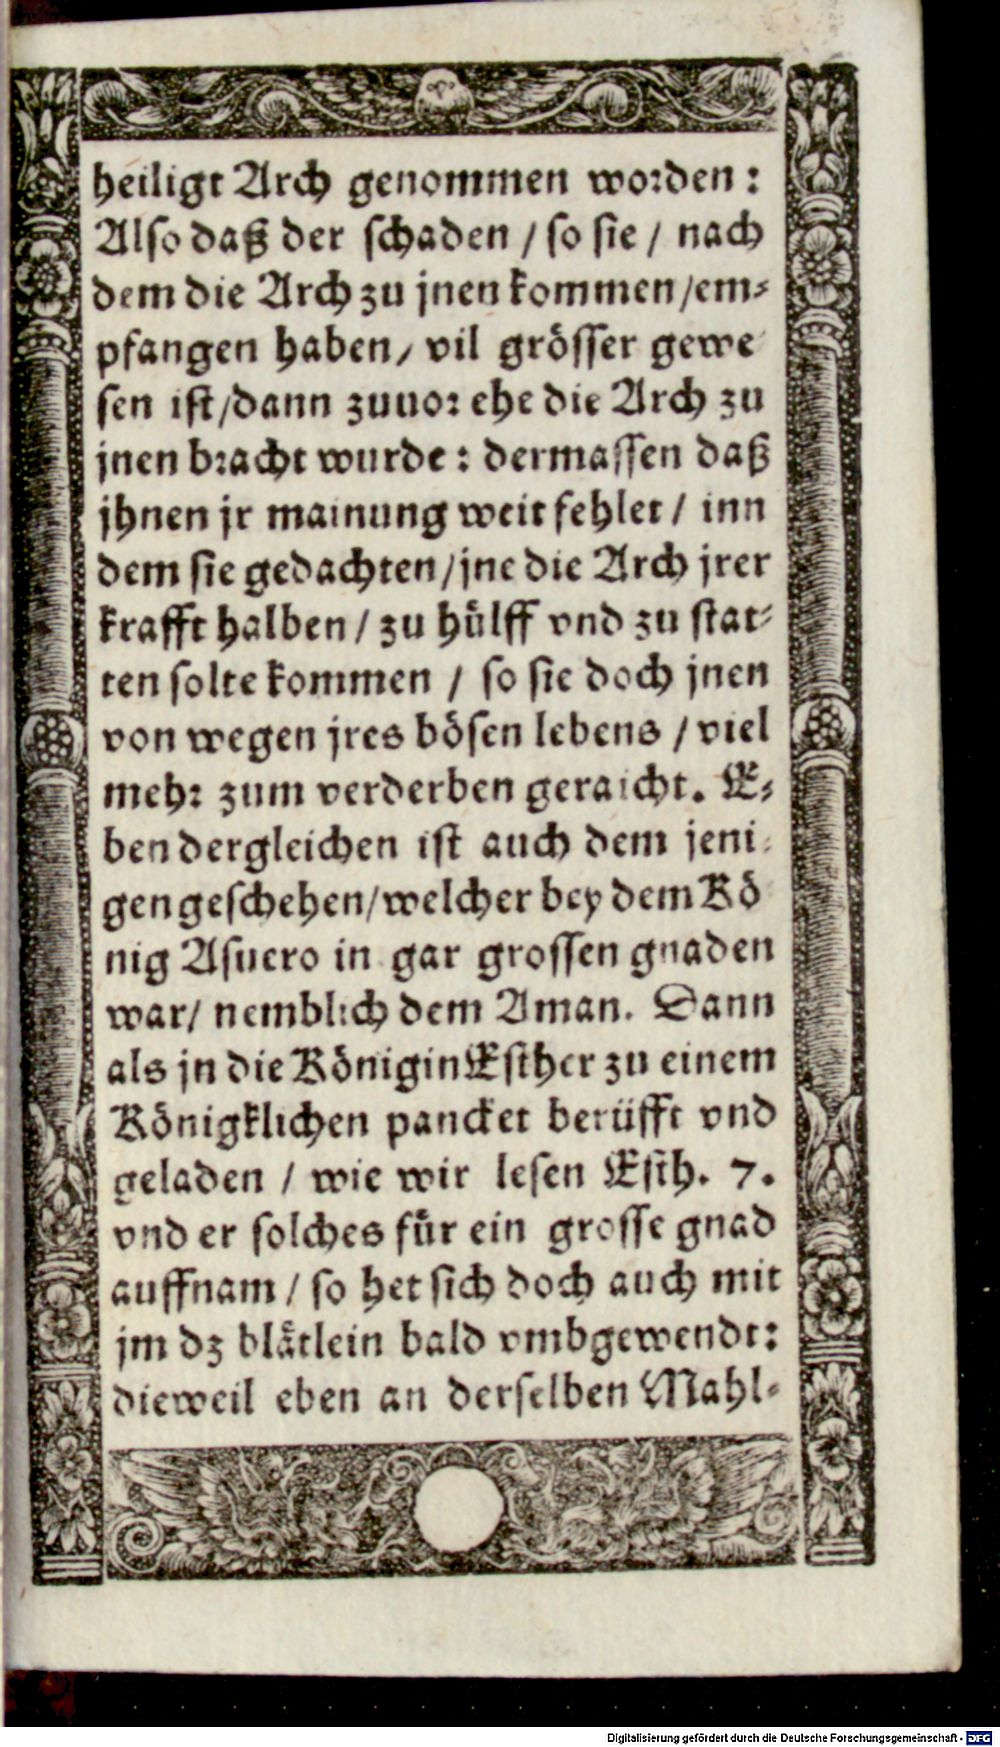 heiligt Arch genommen worden :
Also daß der schaden / so sie / nach
dem die Arch zu jnen kommen /em⸗
pfangen haben / vil grösser gewe
sen ist /dann zuuor ehe die Arch zu
jnen bracht wurde : dermassen daß
jhnen jr mainung weit fehlet / inn
dem sie gedachten /jne die Arch jrer
krafft halben / zu hülff vnd zu stat⸗
ten solte kommen / so sie doch jnen
von wegen jres bösen lebens / viel
mehr zum verderben geraicht. E⸗
ben dergleichen ist auch dem jeni⸗
gen geschehen/welcher bey dem Kö
nig Asuero in gar grossen gnaden
war/ nemblich dem Aman. Dann
als jn die Königin Esther zu einem
Königklichen pancket berüfft vnd
geladen / wie wir lesen Esth. 7.
vnd er solches für ein grosse gnad
auffnam / so het sich doch auch mit
jm dz blätlein bald vmbgewendt:
dieweil eben an derselben Mahl⸗
Digitalisierung gefördert durch die Deutsche Forschungsgemeinschaft - DFG